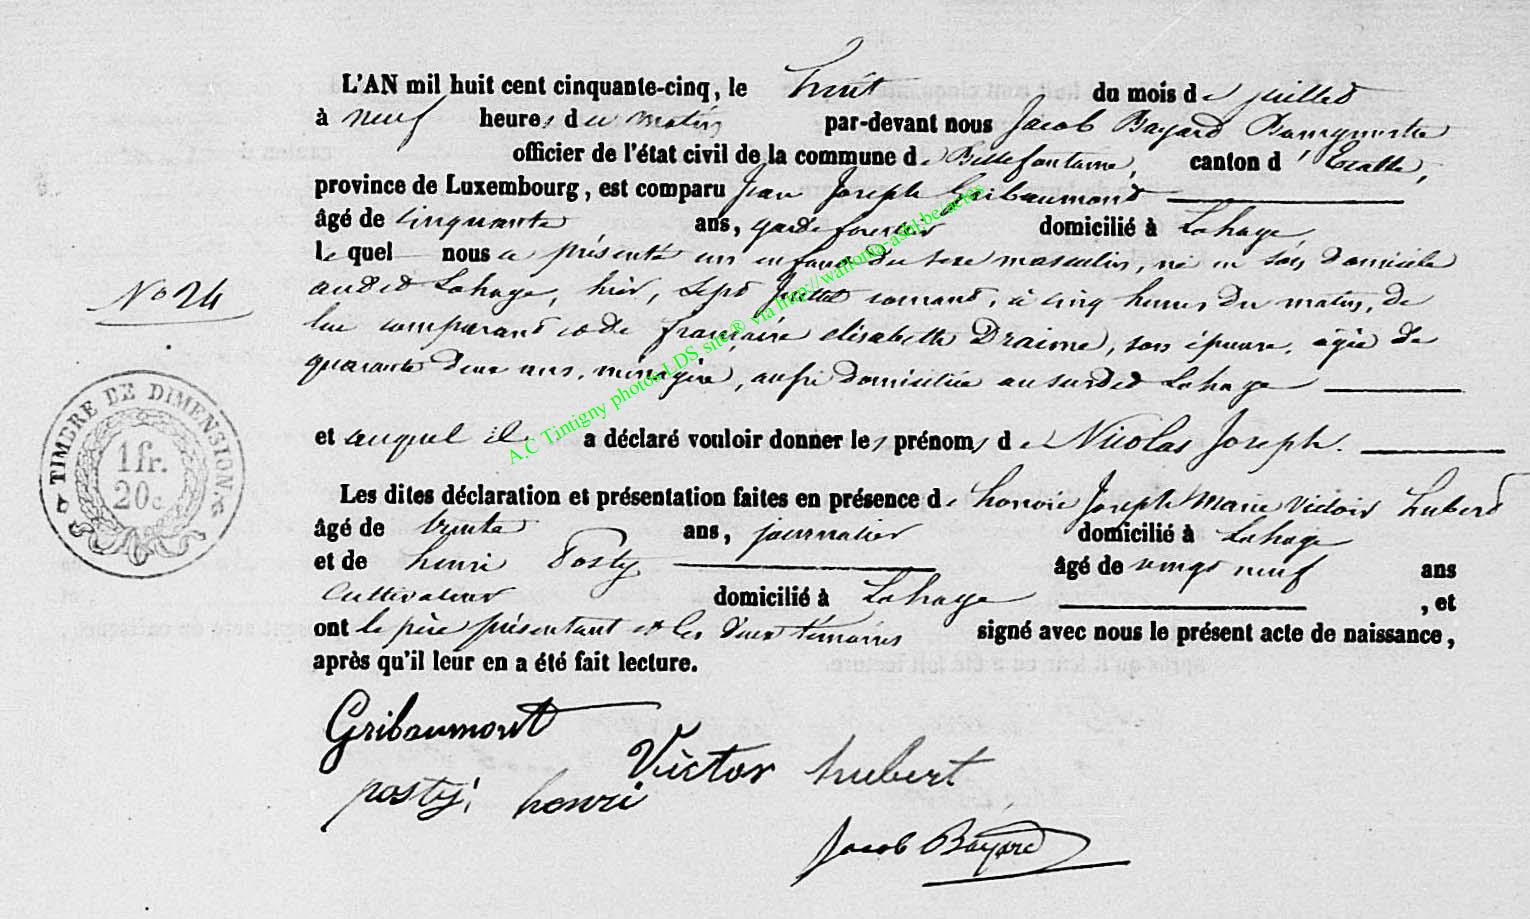 L'AN mil huit cent cinquante-cinq, le huit du mois de juillet
à neuf heures du matin par-devant nous Jacob Bayard Bourgmestre
officier de l'état civil de la commune de Bellefontaine, canton d'Etalle,
province de Luxembourg, est comparu Jean Joseph Gribaumont
âgé de cinquante ans, garde forestier domicilié à Lahage,
le quel nous a présenté un enfant du sexe masculin, né en son domicile
No 24
audit Lahage, hier, sept Juillet courant, à cinq heures du matin, de
lui comparant et de françoise elisabeth Draime, son épouse, agée de
quarante deux ans, ménagère, aussi domiciliée au susdit Lahage
et auquel il a déclaré vouloir donner les prénoms de Nicolas Joseph.
TIMBRE DE DIMENSION.
1 fr.
20 c
Les dites déclaration et présentation faites en présence de honoré Joseph Marie Victoir hubert
âgé de trente ans, journalier domicilié à Lahage
et de henri Posty âgé de vingt neuf ans
Cultivateur domicilié à Lahage, et
ont le père présentant et les deux témoins signé avec nous le présent acte de naissance,
après qu'il leur en a été fait lecture.
Gribaumont
Victor hubert
posty henri
Jacob Bayard
A.C Tintigny photos LDS site® via http://wallonia-asbl.be/actes